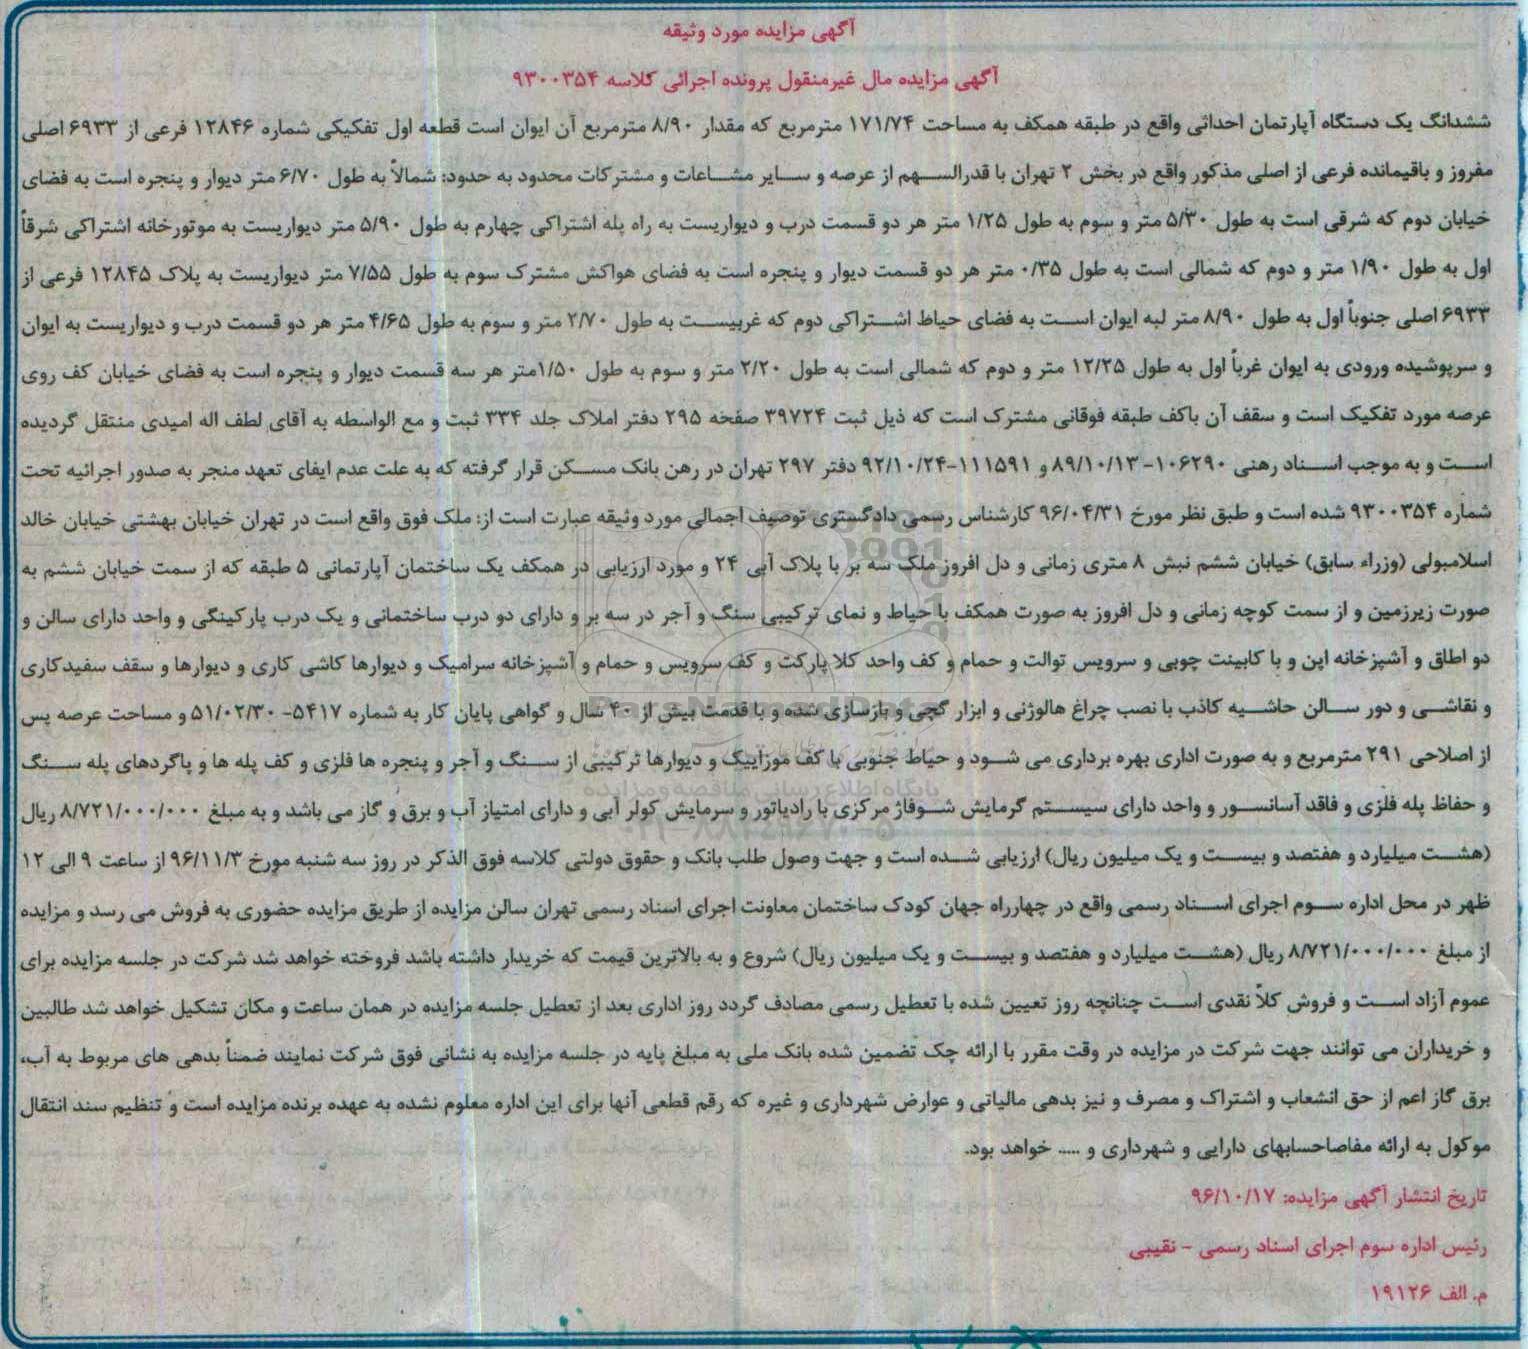 آگهی مزایده مورد وثیقه
آگهی مزایده مال غیرمنقول پرونده اجرائی کلاسه ۹۳۰۰۳۵۴
ششدانگ یک دستگاه آپارتمان احداثی واقع در طبقه همکف به مساحت ۱۷۱/۷۴ مترمربع که مقدار ۸/۹۰ مترمربع آن ایوان است قطعه اول تفکیکی شماره ۱۲۸۴۶ فرعی از ۶۹۳۳ اصلی
مفروز و باقیمانده فرعی از اصلی مذکور واقع در بخش ۲ تهران با قدرالسهم از عرصه و سایر مشاعات و مشترکات محدود به حدود: شمالاً به طول ۶/۷۰ متر دیوار و پنجره است به فضای
خیابان دوم که شرقی است به طول ۵/۳۰ متر و سوم به طول ۱/۲۵ متر هر دو قسمت درب و دیواریست به راه پله اشتراکی چهارم به طول ۵/۹۰ متر دیواریست به موتورخانه اشتراکی شرقاً
اول به طول ۱/۹۰ متر و دوم که شمالی است به طول ۰/۳۵ متر هر دو قسمت دیوار و پنجره است به فضای هواکش مشترک سوم به طول ۷/۵۵ متر دیواریست به پلاک ۱۲۸۴۵ فرعی از
۶۹۳۳ اصلی جنوباً اول به طول ۸/۹۰ متر لبه ایوان است به فضای حیاط اشتراکی دوم که غربیست به طول ۲/۷۰ متر و سوم به طول ۴/۶۵ متر هر دو قسمت درب و دیواریست به ایوان
و سرپوشیده ورودی به ایوان غرباً اول به طول ۱۲/۲۵ متر و دوم که شمالی است به طول ۲/۲۰ متر و سوم به طول ۱/۵۰متر هر سه قسمت دیوار و پنجره است به فضای خیابان کف روی
عرصه مورد تفکیک است و سقف آن باکف طبقه فوقانی مشترک است که ذیل ثبت ۳۹۷۲۴ صفحه ۲۹۵ دفتر املاک جلد ۳۳۴ ثبت و مع الواسطه به آقای لطف اله امیدی منتقل گردیده
است و به موجب اسناد رهنی ۱۰۶۲۹۰- ۸۹/۱۰/۱۳ و ۱۱۱۵۹۱-۹۲/۱۰/۲۴ دفتر ۲۹۷ تهران در رهن بانک مسکن قرار گرفته که به علت عدم ایفای تعهد منجر به صدور اجرائیه تحت
شماره ۹۳۰۰۳۵۴ شده است و طبق نظر مورخ ۹۶/۰۴/۳۱ کارشناس رسمی دادگستری توصیف اجمالی مورد وثیقه عبارت است از: ملک فوق واقع است در تهران خیابان بهشتی خیابان خالد
اسلامبولی (وزراء سابق) خیابان ششم نبش ۸ متری زمانی و دل افروز ملک سه بر با پلاک آبی ۲۴ و مورد ارزیابی در همکف یک ساختمان آپارتمانی ۵ طبقه که از سمت خیابان ششم به
صورت زیرزمین و از سمت کوچه زمانی و دل افروز به صورت همکف با حیاط و نمای ترکیبی سنگ و آجر در سه بر و دارای دو درب ساختمانی و یک درب پارکینگی و واحد دارای سالن و
دو اطاق و آشپزخانه اپن و با کابینت چوبی و سرویس توالت و حمام و کف واحد کلا پارکت و کف سرویس و حمام و آشپزخانه سرامیک و دیوارها کاشی کاری و دیوارها و سقف سفیدکاری
و نقاشی و دور سالن حاشیه کاذب با نصب چراغ هالوژنی و ابزار گچی و بازسازی شده و با قدمت بیش از ۴۰ سال و گواهی پایان کار به شماره ۵۴۱۷- ۵۱/۰۲/۳۰ و مساحت عرصه پس
از اصلاحی ۲۹۱ مترمربع و به صورت اداری بهره برداری می شود و حیاط جنوبی با کف موزاییک و دیوارها ترکیبی از سنگ و آجر و پنجره ها فلزی و کف پله ها و پاگردهای پله سنگ
و حفاظ پله فلزی و فاقد آسانسور و واحد دارای سیستم گرمایش شوفاژ مرکزی با رادیاتور و سرمایش کولر آبی و دارای امتیاز آب و برق و گاز می باشد و به مبلغ ۸/۷۲۱/۰۰۰/۰۰۰ ریال
(هشت میلیارد و هفتصد و بیست و یک میلیون ریال) ارزیابی شده است و جهت وصول طلب بانک و حقوق دولتی کلاسه فوق الذکر در روز سه شنبه مورخ ۹۶/۱۱/۳ از ساعت ۹ الی ۱۲
ظهر در محل اداره سوم اجرای اسناد رسمی واقع در چهارراه جهان کودک ساختمان معاونت اجرای اسناد رسمی تهران سالن مزایده از طریق مزایده حضوری به فروش می رسد و مزایده
از مبلغ ۸/۷۲۱/۰۰۰/۰۰۰ ریال (هشت میلیارد و هفتصد و بیست و یک میلیون ریال) شروع و به بالاترین قیمت که خریدار داشته باشد فروخته خواهد شد شرکت در جلسه مزایده برای
عموم آزاد است و فروش کلاً نقدی است چنانچه روز تعیین شده با تعطیل رسمی مصادف گردد روز اداری بعد از تعطیل جلسه مزایده در همان ساعت و مکان تشکیل خواهد شد طالبین
و خریداران می توانند جهت شرکت در مزایده در وقت مقرر با ارائه چک تضمین شده بانک ملی به مبلغ پایه در جلسه مزایده به نشانی فوق شرکت نمایند ضمناً بدهی های مربوط به آب،
برق گاز اعم از حق انشعاب و اشتراک و مصرف و نیز بدهی مالیاتی و عوارض شهرداری و غیره که رقم قطعی آنها برای این اداره معلوم نشده به عهده برنده مزایده است و تنظیم سند انتقال
موکول به ارائه مفاصاحسابهای دارایی و شهرداری و ..... خواهد بود.
تاریخ انتشار آگهی مزایده: ۹۶/۱۰/۱۷
رئیس اداره سوم اجرای اسناد رسمی - نقیبی
م. الف ۱۹۱۲۶
ParsNamadData
پایگاه اطلاع رسانی مناقصه و مزایده